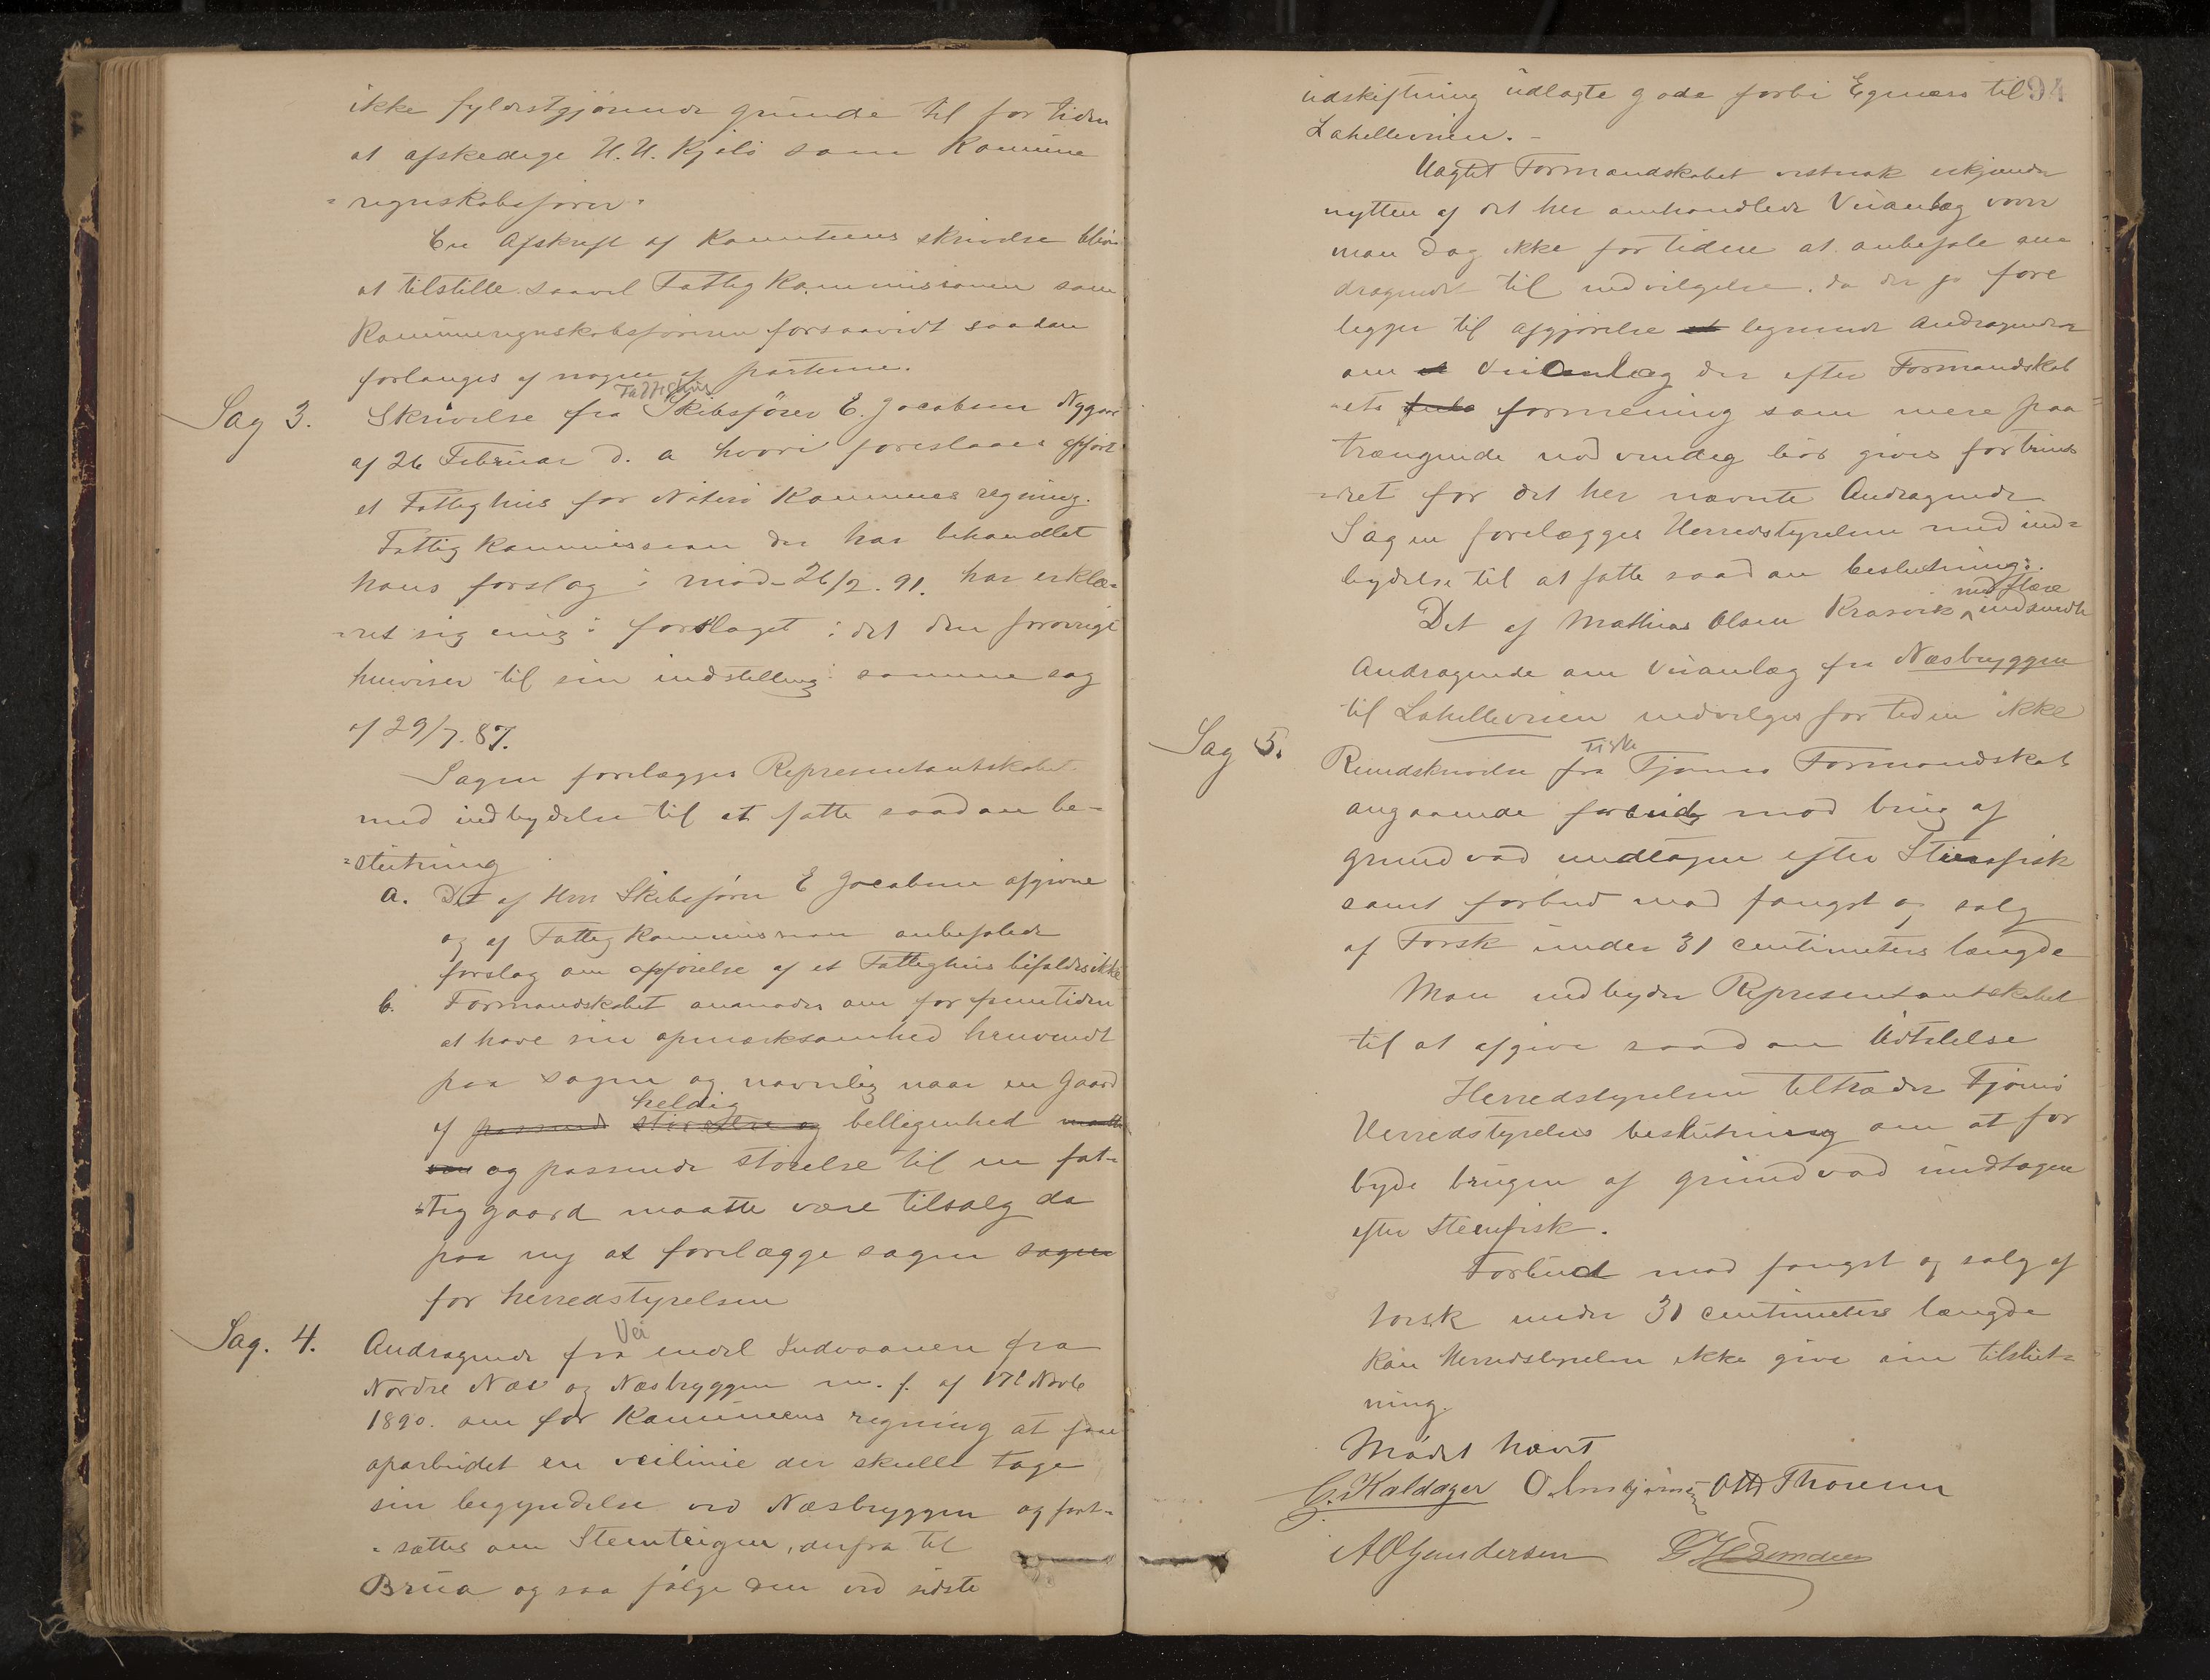 ikke fyldestgjørende grunde til for tiden
at afskedige H. H. Kjølø som Komune
-regnskabsfører.
En Afskrift af Komiteens skrivelse bliver
at tilstille saavel Fattigkommissionen som
Kommuneregnskabsføreren forsaavidt saadan
forlanges af nogen af parterne.
Fattighus
Sag 3. Skrivelse fra Skibsfører E. Jacobsen Nygaar
af 26 Februar d. a hvori foreslaaes opført
et Fattighus for Nøterø Kommunes regning.
Fattigkommissionen der har behandlet
hans forslag i møde 26/2. 91. har erklæ-
-ret sig enig i forslaget i det den forøvrigt
henviser til sin indstilling i samme sag
af 29/7. 87.
Sagen forelægges Representantskabet
med indbydelse til at fatte saadan be-
=slutning
a. Det af Herr Skibsfører E Jacobsen afgivne
og af Fattigkommissionen anbefalede
forslag om opførelse af et Fattighus bifaldes ikke
b. Formandskabet anmodes om for fremtiden
at have sin opmærksomhed henvendt
paa sagen og navnlig naar en Gaard
heldig
af passende størrelse og belligenhed maatte
være og passende størelse til en fat-
-tiggaard maatte være tilsalg da
paa ny at forelægge sagen sagen
for herredstyrelsen
Vei
Sag. 4. Andragende fra endel Indvaanere fra
Nordre Næs og Næsbryggen m. f. af 17de Novb
1890. om for Kommunens regning at faa
oparbeidet en veilinie der skulle tage
sin begyndelse ved Næsbryggen og fort-
-sættes om Steenteigen, derfra til
Brua og saa følge den ved sidste
94
udskiftning udlagte gade forbi Egenæs til
Lahelleveien. -
Uagtet Formandskabet vistnok erkjender
nytten af det her omhandlede Veianlæg vover
man dog ikke fortiden at anbefale an
dragendet til indvilgelse, da der jo fore
ligger til afgjørelse et lignende Andragender
om et Veianlæg der efter Formandskab
-ets formening som mere paa
trængende nødvendig bør gives fortrins
-ret for det her nævnte Andragende
Sagen forelægges Herredstyrelsen med ind=
bydelse til at fatte saadan beslutning:.
med flere
Det af Mathias Olsen Kravik indsendte
Andragende om Veianlæg fra Næsbryggen
til Lahelleveien indvilges fortiden ikke
Fiske
Sag 5. Rundskrivelse fra Tjømø Formandskab
angaaende forbud mod brug af
grundvad undtagen efter Steenfisk
samt forbud mod fangst og salg
af Torsk under 31 centimeters længde
Man indbyder Representantskabet
til at afgive saadan Udtalelse
Herredstyrelsen tiltræder Tjømø
Herredstyrelses beslutning om at for
byde brugen af grundvad undtagen
efter Steenfisk.
Forbud mod fangst og salg af
torsk under 31 centimeters længde
kan Herredstyrelsen ikke give sin tilslut=
ning.
Mødet hævet
C. Kaldager Otto Thoresen
A O Gundersen